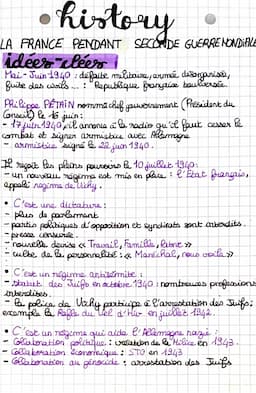 history
LA FRANCE PENDANT SECONDE GUERRE MONDIALE
idées-clées
Mai-Juin 1940 : défaite militaire, armée désorganisée,
fuite des civils ... : République française boulversée.
Philippe PÉTAIN nommé chef gouvernement (Président du
Conseil) le 16 juin :
- 17 juin 1940, il annonce à la radio qu'il faut cesser le
combat et signer armistice avec Allemagne
- armistice signé le 22 juin 1940.
Il reçoit les pleins pouvoirs le 10 juillet 1940 :
- un nouveau régime est mis en place : l'État français,
appelé régime de Vichy.
• C'est une dictature :
- plus de parlement
- partis politiques d'opposition et syndicats sont interdits
- presse censurée.
- nouvelle devise « Travail, Famille, Patrie »
- culte de la personnalité : « Maréchal, nous voilà »
• C'est un régime antisémite :
- statut des Juifs en octobre 1940 : nombreuses professions
interdites.
- la police de Vichy participe à l'arrestation des Juifs :
exemple la Rafle du Vel d'Hiv en juillet 1942.
• C'est un régime qui aide l'Allemagne nazie :
- Collaboration politique : création de la Milice en 1943.
- Collaboration économique : STO en 1943
- Collaboration au génocide : arrestation des Juifs